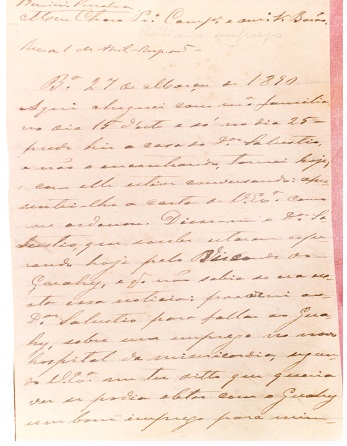 Meu Charo Pri Camp e amº Barão
Bª 27 de Março de 1890
Aqui cheguei com mª familia
no dia 15 d'este e só no dia 25
pude hir a casa do Dr Salustio,
e não o encontrando, tornei hoje,
e com elle estive conversando; apre
sentei-lhe a carta de V.Exª. como
me ordenou. Disse-me o Dr Sa
lustio, que estavam espe
rando hoje pelo Visconde do
Guahy, e q não sabia se era ex
acta essa noticia; preveni ao
Dr Salustio para fallar ao Gua
hy, sobre um emprego no novo
hospital da misericordia, segun
do V.Exª me ter ditto que queria
ver se podia obter com o Guahy
um bom emprego para mim